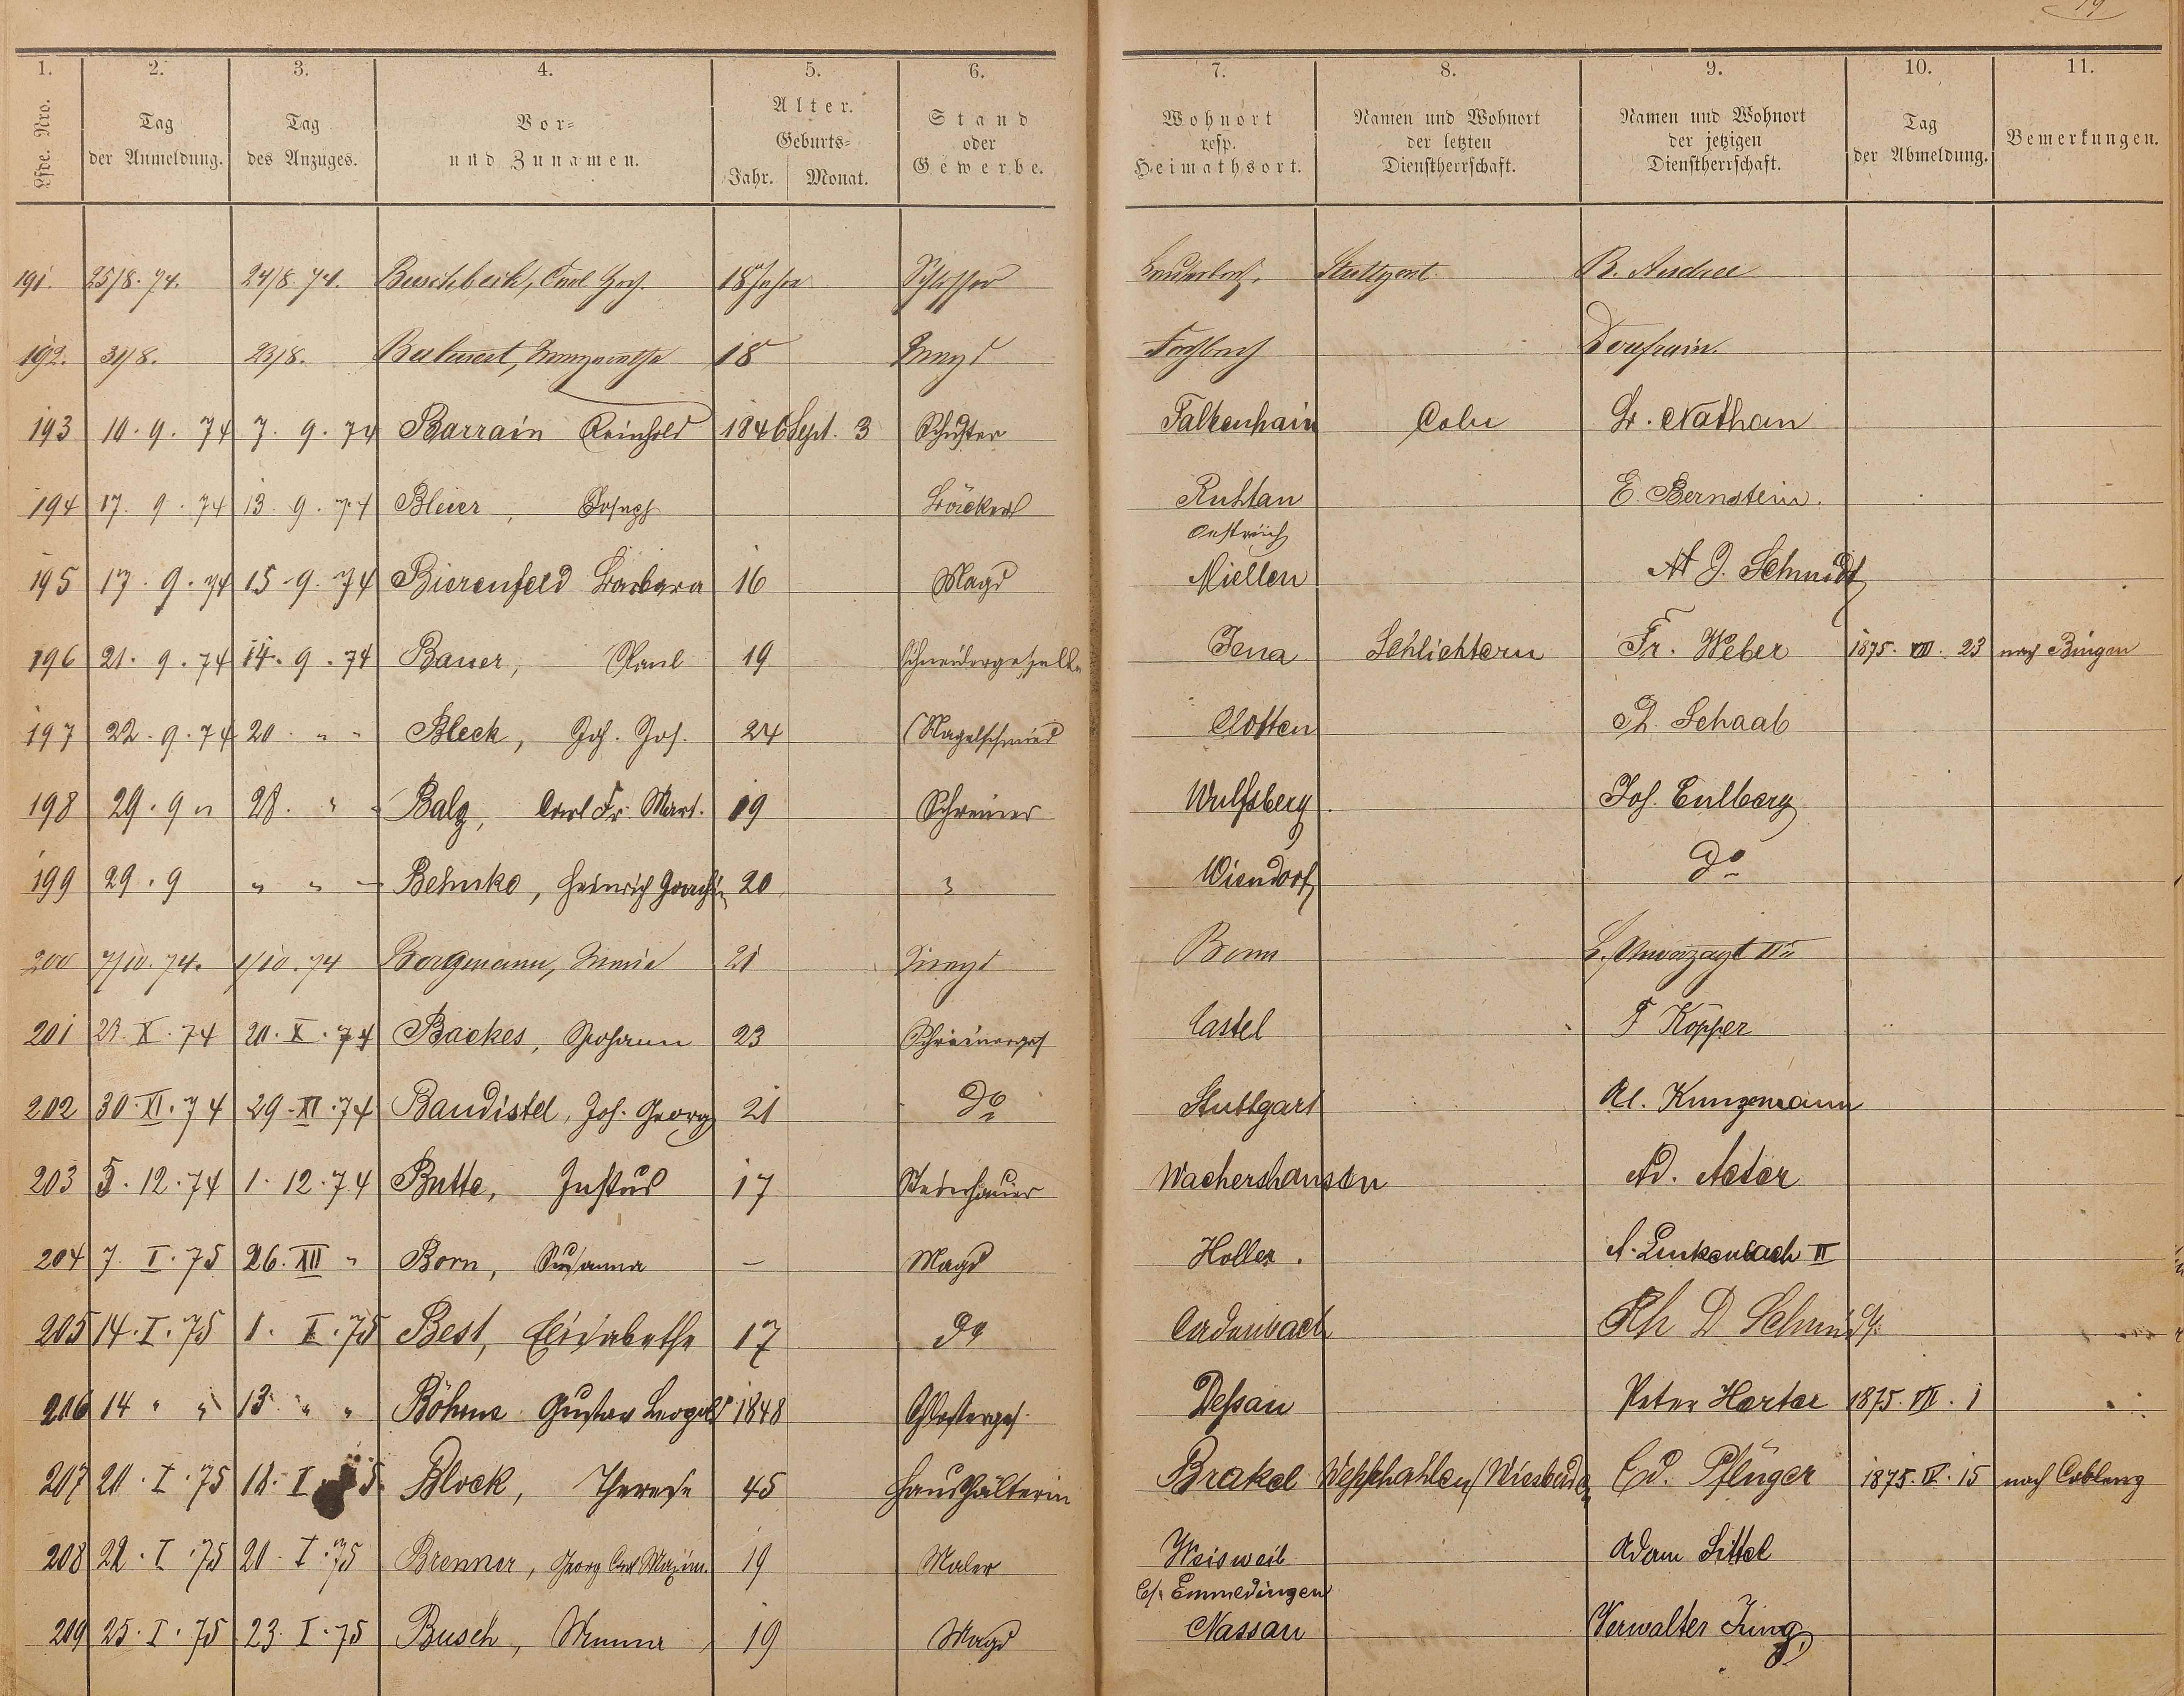 19
1. 2. 3. 4. 5. 6. 7. 8. 9. 10. 11.
Lfde. Nro. Tag der Anmeldung. Tag des Anzuges. Vor= und Zunamen. Alter. Geburts= Jahr. Monat. Stand oder Gewerbe. Wohnort resp. Heimathsort. Namen und Wohnort der letzten Dienstherrschaft. Namen und Wohnort der jetzigen Dienstherrschaft. Tag der Abmeldung. Bemerkungen.
191. 25/8. 74. 24/8. 74. Buschbeck, Carl 18 Jahre Schlosser Stuttgart B. Andree
192. 31/8. 23/8. Margaretha 18 Magd Fachbach
193 10. 9. 74 7. 9. 74 Barrain Reinhold 1846 Sept. 3 Schuster Falkenhain Cobu Dr. Nathan
194 17. 9. 74 13. 9. 74 Bleier, Joseph Bäcker Ruhtan E. Bernstein.
Oestreich
195 17. 9. 74 15. 9. 74 Bierenfeld Barbara 16 Magd Miellen A J. Schmidt
196 21. 9. 74 14. 9. 74 Bauer, Paul 19 Schneidergeselle Jena Schlichtern Fr. Weber 1875. VIII. 23 nach Bingen
197 22. 9. 74 20. " " Bleck, Joh. Jos. 24 Nagelschmied Clotten Schaab
198 29. 9 " 28. " " Balz, Carl Fr. Mart. 19 Schreiner Wulfsberg. Jos. Eulberg
199 29. 9 " " " Behnke, Heinrich Joachim 20 " Wiendorf do
200 7/10. 74. 1/10. 74 Borgmann, Maria 21 Magd Bonn L. Unverzagt IIr
201 23. X. 74 20. X. 74 Backes, Johann 23 Schreinerges Castel F Kopper
202 30. XI. 74 29. XI. 74 Baudistel, Joh. Georg 21 do Stuttgart Al. Kunzmann
203 5. 12. 74 1. 12. 74 Butte, Justus 17 Steinhauer Wachershausen Ad. Aster
204 7. I. 75 26. XII " Born, Susanna – Magd Holler. A. Linkenbach II
205 14. I. 75 1. I. 75 Best, Elisabethe 17 do Cadenbach Ph D Schmidt
206 14 " " 13 " " Böhme Gustav Leopold 1848 Schlosserges. Dessau Peter Harter 1875. VII. 1
207 20. I. 75 18. I. 75 Block, Therese 45 Haushälterin Brakel Westphahlen/ Wiesbaden Ed. Pflüger 1875. IV. 15 nach Coblenz
208 22. I. 75 20. I. 75 Brenner, Georg Carl Maxim. 19 Maler Weisweil Adam Sittel
b/. Emmedingen
209 25. I. 75 23. I. 75 Busch, Minna 19 Magd Nassau Verwalter Jung